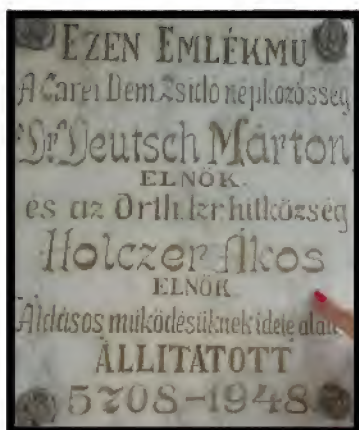 EZEN EMLÉKMU
A Carei Dem Zsidó népközösség
Dr Deutsch Márton
ELNÖK
és az Orth. Izr. hitközség
Holczer Ákos
ELNÖK
Áldásos működésüknek ideje alatt
ÁLLITATOTT
5708-1948